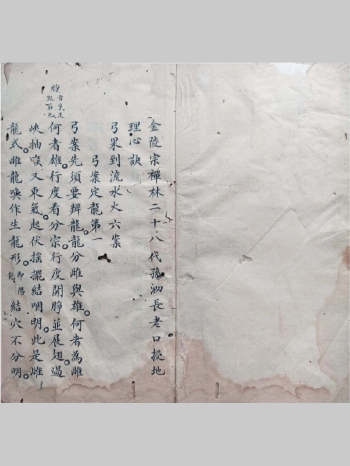 金陵宗禅林二十八代孫泗長老口授地
理心訣
弓案到流水火六案
弓案定龍第一
弓案先須要辨龍龍分雌與雄何者為雌
何者雄行度看分宗行度開脖並展翅過
峽抽嗄又東氣起伏擺擺結咽明此是雌
龍式雌龍喚作生龍形結穴不分明